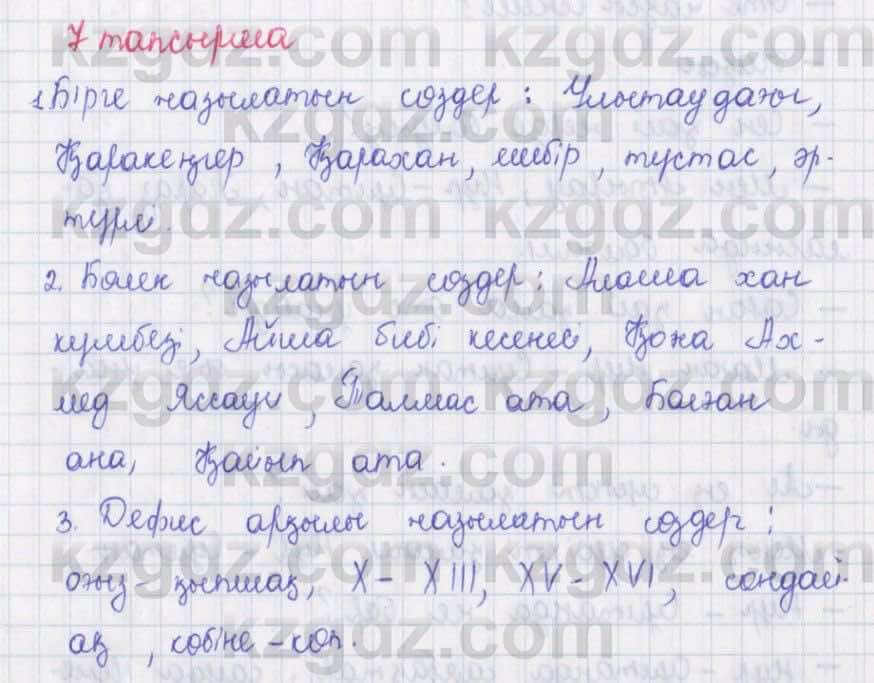 7 тапсырма
1. Бірге жазылатын сөздер: Ұлытаудағы,
Қаракеңгер, Қарахан, ешбір, тұстас, әр-
түрлі.
2. Бөлек жазылатын сөздер: Алаша хан
күмбезі, Айша бибі кесенесі, Қожа Ах-
мед Яссауи, Талмас ата, Болған
ана, Қайып ата.
3. Дефис арқылы жазылатын сөздер:
оғыз-қыпшақ, X-XIII, XV-XVI, сондай-
ақ, көбіне-көп.
kzgdz.com